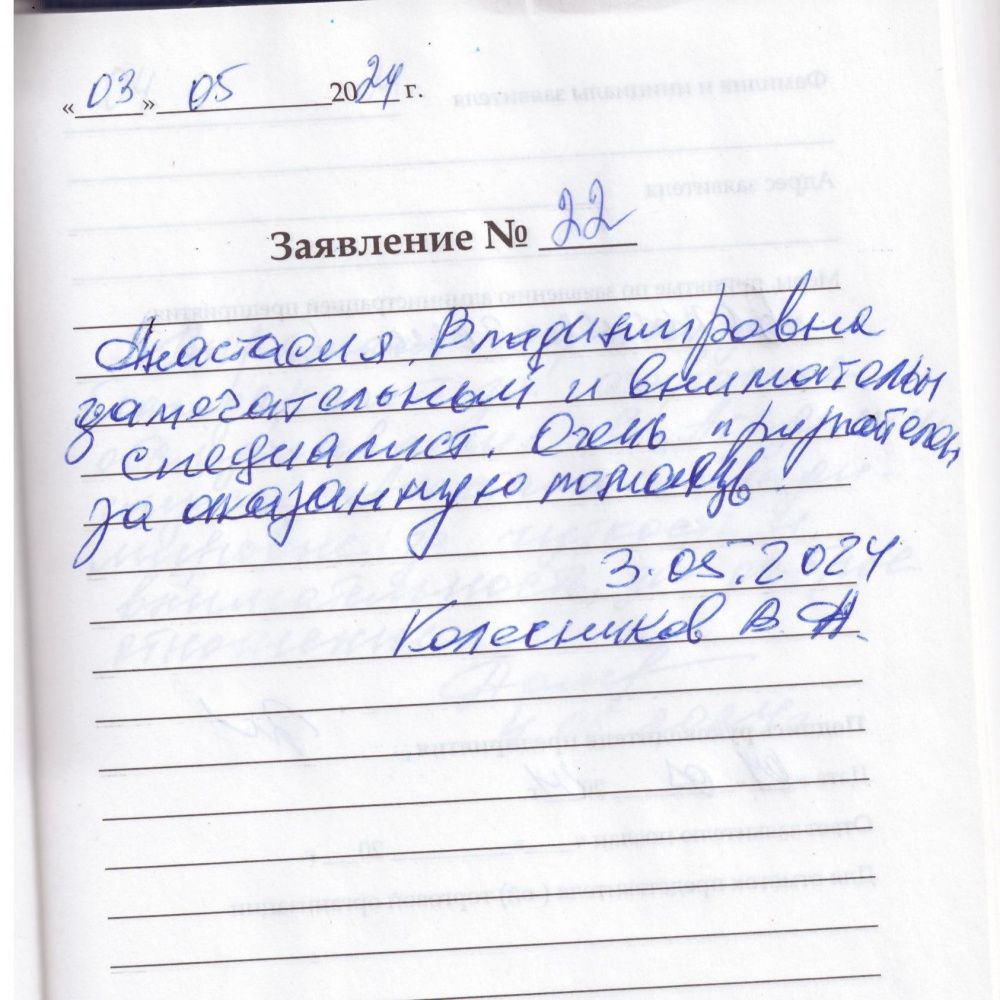 «03» 05 2024 г.
Заявление № 22
Анастасия Владимировна
замечательный и внимательны
специалист. Очень признателен
за оказанную помощь.
3.05.2024
Колесников В. А.